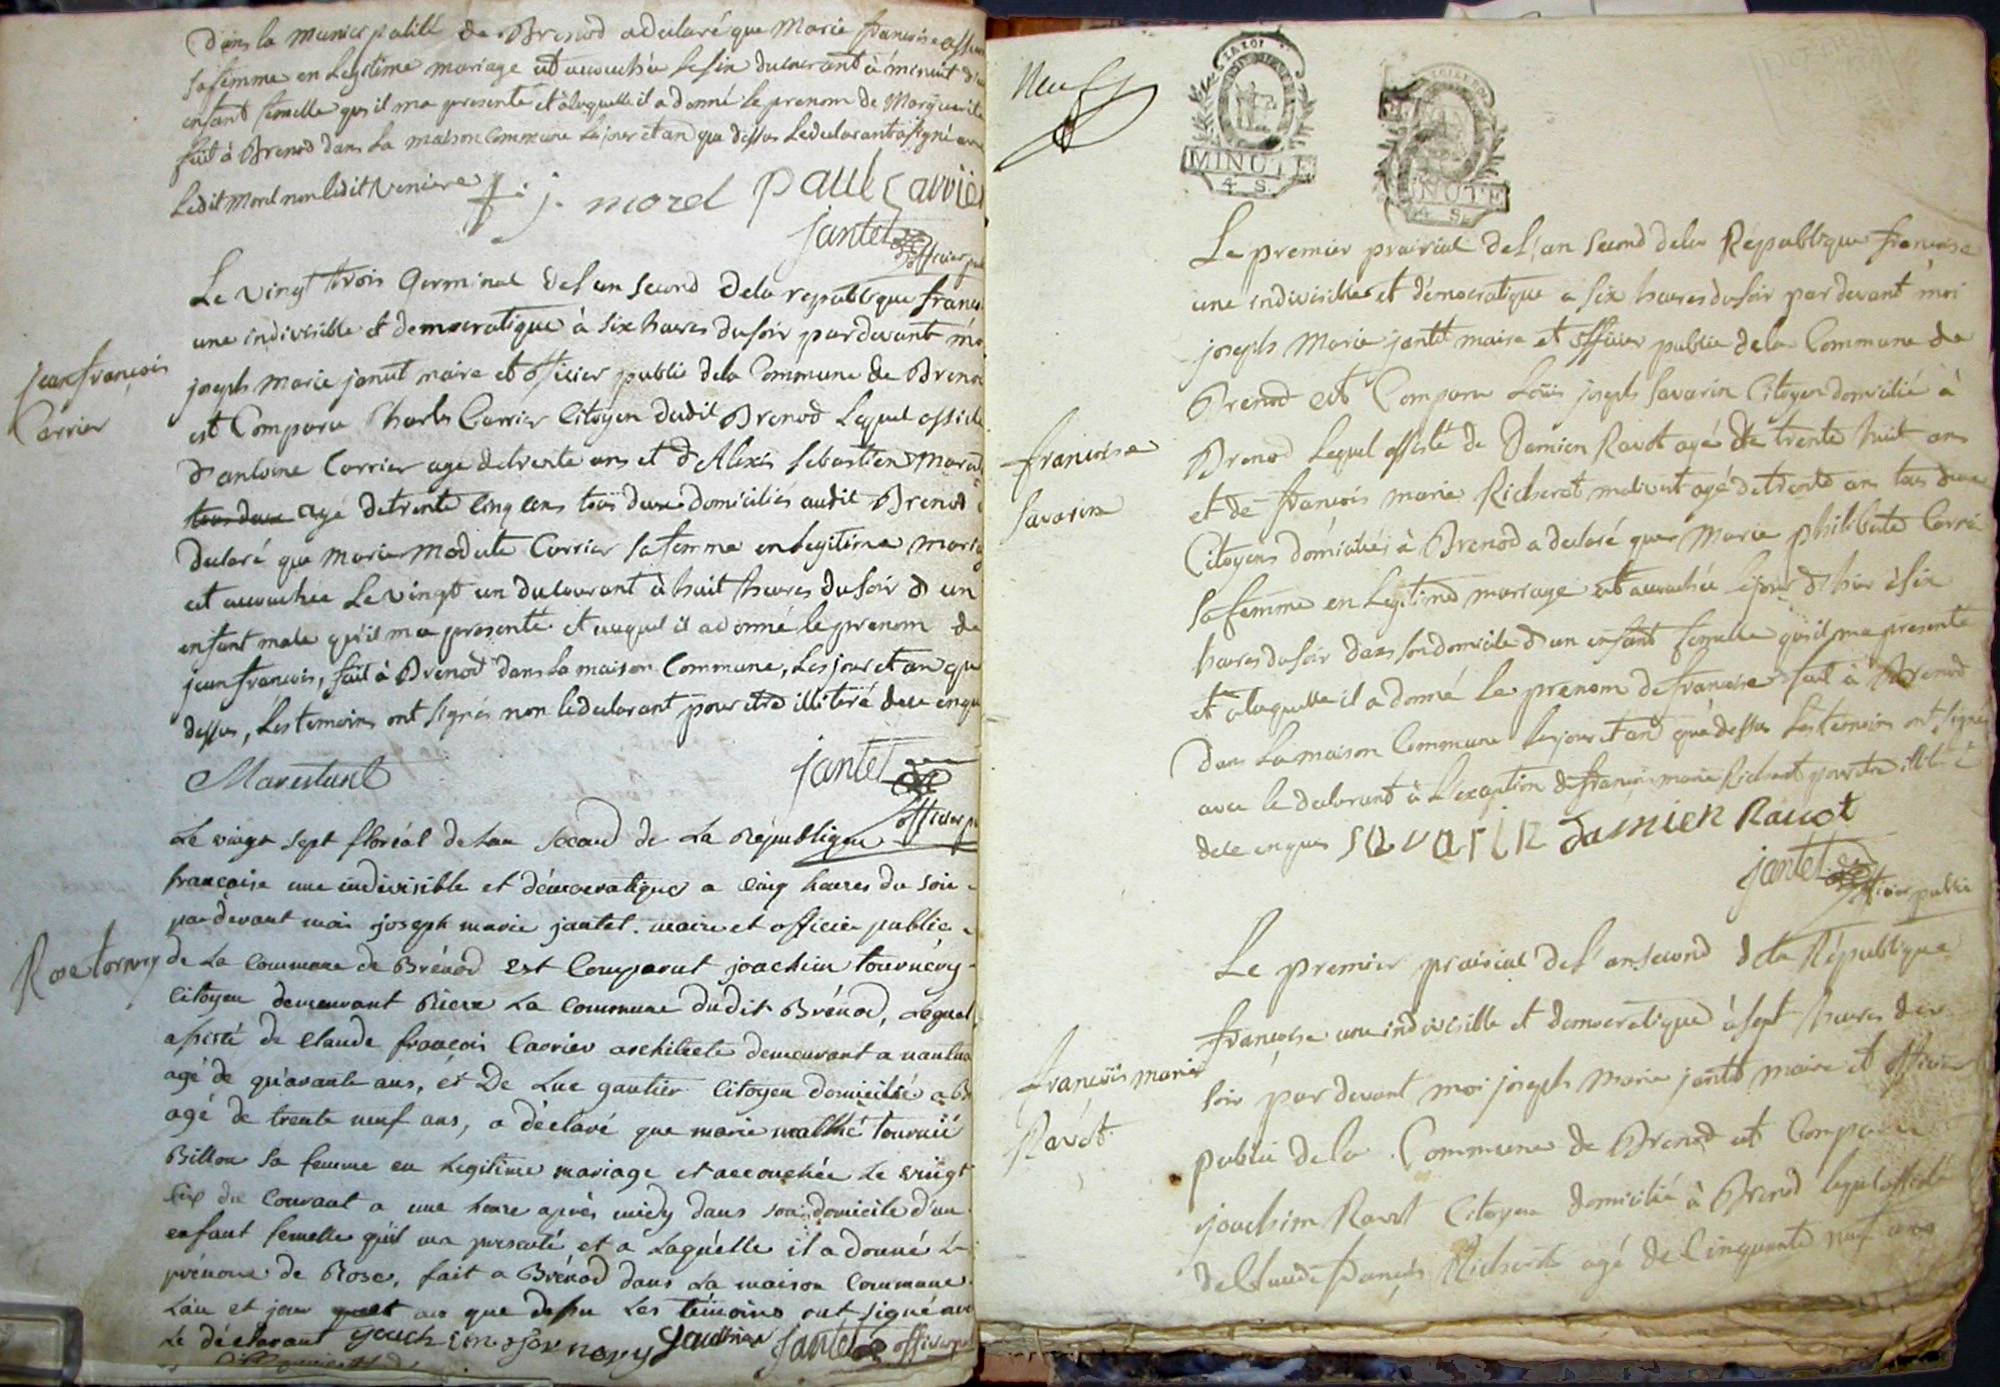 Dans la municipalité de Brenod a declaré que Marie françoise
sa femme en legitime mariage est accouchée le six du courant à minuit
enfant femelle qu'il ma presenté et a laquelle il a donné le prenom de Marguerite
fait à Brenod dans la maison commune le jour et an que dessus le declarant a signé avec
ledit Morel non ledit
j. morel paul Carrier
jantet officier
Le vingt trois Germinal de l'an second de la republique
une indivisible et democratique à six heures du soir par devant
joseph marie jantet maire et officier public de la Commune de Brenod
est Comparu Charles Carrier Citoyen dudit Brenod Lequel assisté
d'antoine Carrier agé de trente ans et d'Alexis Sebastien
jean françois
Carrier
tous deux agé de trente cinq ans tous deux domiciliés audit Brenod
declaré que marie modeste Carrier sa femme en legitime
est accouchée le vingt un du courant à huit heures du soir d'un
enfant male qu'il ma presenté et auquel il a donné le prenom de
jean francois, fait à Brenod dans la maison Commune, les jour et an que
dessus, Les temoins ont signés non le declarant pour etre illiteré de ce enquis
jantet
officier
Le vingt sept floréal de lan second de la République
francaise une indivisible et démocratique a cinq heures du soir
par devant moi joseph marie jantet maire et officier public
Rose tornery
de la commune de Brénod est Comparut joachim tournery
citoyen demeurant Riere la commune dudit Brénod, Lequel
assisté de claude françois Carrier architecte demeurant a nantua
agé de quarante ans, et De Luc gautier citoyen domicilié a
agé de trente neuf ans, a déclaré que marie
Billon sa femme en legitime mariage et accouchée le vingt
six du courant a une heure après midy dans son domicile d'un
enfant femelle quil ma presenté et a laquelle il a donné le
prénom de Rose, fait a Brénod dans la maison commune
Lan et jour que dessu les témoins ont signé avec
Le déclarant jantet officier
Neuf
LA LOI
MINUTE
4 S.
MINUTE
4 S.
Le premier prairial de l'an second de la République françoise
une indivisible et démocratique a six heures du soir par devant moi
joseph Marie jantet maire et officier public de la Commune de
Brenod est Comparu Loüis joseph Savarin Citoyen domicilié à
françoise
Savarin
Brenod Lequel assisté de Damien Ravot agé de trente huit ans
et de françois marie Richerot agé de trente ans tous deux
Citoyens domiciliés à Brenod a declaré que Marie philiberte Carrié
sa femme en Legitime mariage est accouchée le jour d'hier à six
heures du soir dans son domicile d'un enfant femelle qu'il ma presenté
et a laquelle il a donné Le prenom de francoise fait à Brenod
dans la maison Commune les jour et an que dessus Les temoins ont signés
avec le declarant à l'exception de françois marie Richerot pour etre
de ce enquis savarin Damien Ravot
jantet
officier public
Le premier prairial de l'an second de la République
françoise une indivisible et democratique à sept heures du
françois marie
Ravot
soir par devant moi joseph Marie jantet maire et officier
public de la Commune de Brenod est Comparu
joachim Ravot Citoyen domicilié à Brenod lequel assisté
de Claude françois Richerot agé de Cinquante neuf ans